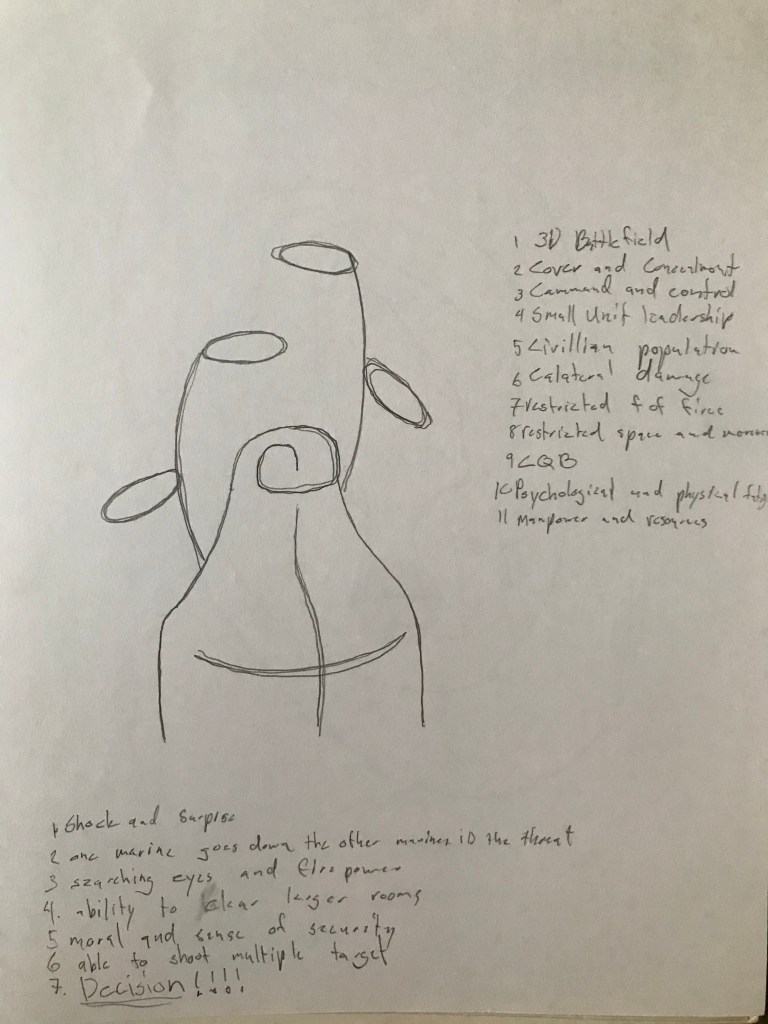 1 3D Battlefield
2 Cover and Concealment
3 Command and control
4 Small Unit leadership
5 Civillian population
6 Calateral damage
7 restricted f of fire
8 restricted space and
9 CQB
10 Psychological and physical
11 Manpower and resources
1 Shock and Surprise
2 one marine goes down the other marines ID the threat
3 searching eyes and fire power
4. ability to clear larger rooms
5 moral and sense of security
6 able to shoot multiple target
7. Decision !!!!